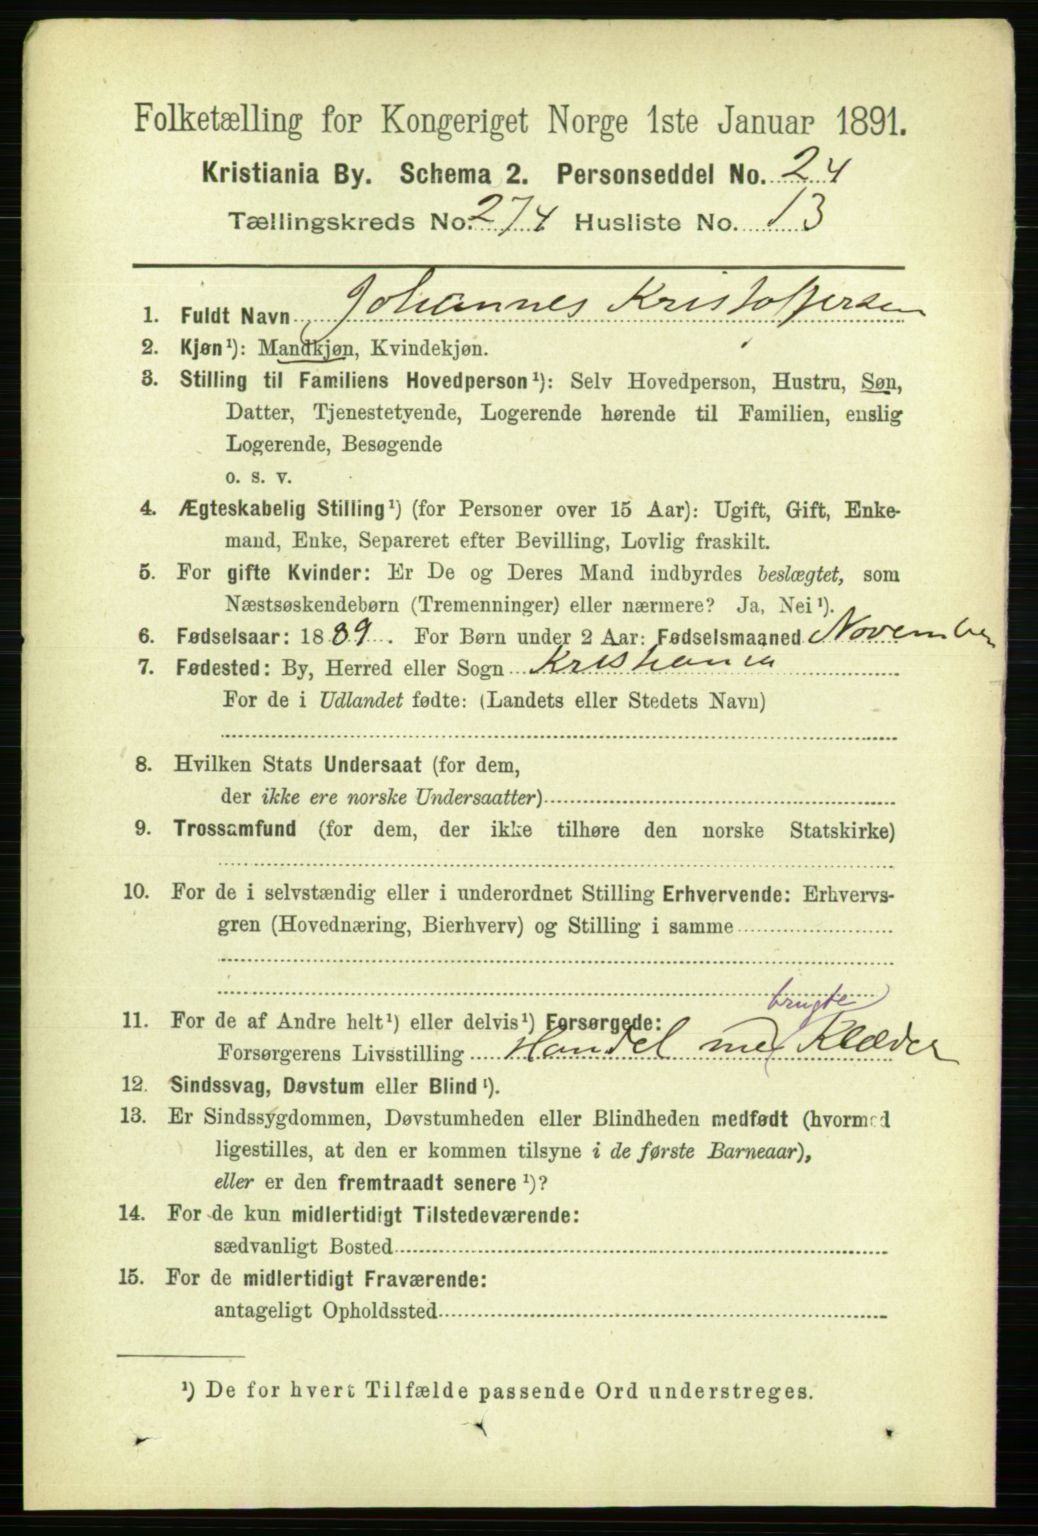 Folketælling for Kongeriget Norge 1ste Januar 1891.
Kristiania By. Schema 2. Personseddel No. 24
Tællingskreds No. 274 Husliste No. 13
1. Fuldt Navn Johannes Kristoffersen
2. Kjøn¹): Mandkjøn, Kvindekjøn.
3. Stilling til Familiens Hovedperson¹): Selv Hovedperson, Hustru, Søn,
Datter, Tjenestetyende, Logerende hørende til Familien, enslig
Logerende, Besøgende
o. s. v.
4. Ægteskabelig Stilling¹) (for Personer over 15 Aar): Ugift, Gift, Enke-
mand, Enke, Separeret efter Bevilling, Lovlig fraskilt.
5. For gifte Kvinder: Er De og Deres Mand indbyrdes beslægtet, som
Næstsøskendebørn (Tremenninger) eller nærmere? Ja, Nei¹).
6. Fødselsaar: 1889. For Børn under 2 Aar: Fødselsmaaned November
7. Fødested: By, Herred eller Sogn Kristiania
For de i Udlandet fødte: (Landets eller Stedets Navn)
8. Hvilken Stats Undersaat (for dem,
der ikke ere norske Undersaatter)
9. Trossamfund (for dem, der ikke tilhøre den norske Statskirke)
10. For de i selvstændig eller i underordnet Stilling Erhvervende: Erhvervs-
gren (Hovednæring, Bierhverv) og Stilling i samme
brugte
11. For de af Andre helt¹) eller delvis¹) Forsørgede:
Forsørgerens Livsstilling Handel med Klæder
12. Sindssvag, Døvstum eller Blind¹).
13. Er Sindssygdommen, Døvstumheden eller Blindheden medfødt (hvormed
ligestilles, at den er kommen tilsyne i de første Barneaar),
eller er den fremtraadt senere¹)?
14. For de kun midlertidigt Tilstedeværende:
sædvanligt Bosted
15. For de midlertidigt Fraværende:
antageligt Opholdssted
¹) De for hvert Tilfælde passende Ord understreges.